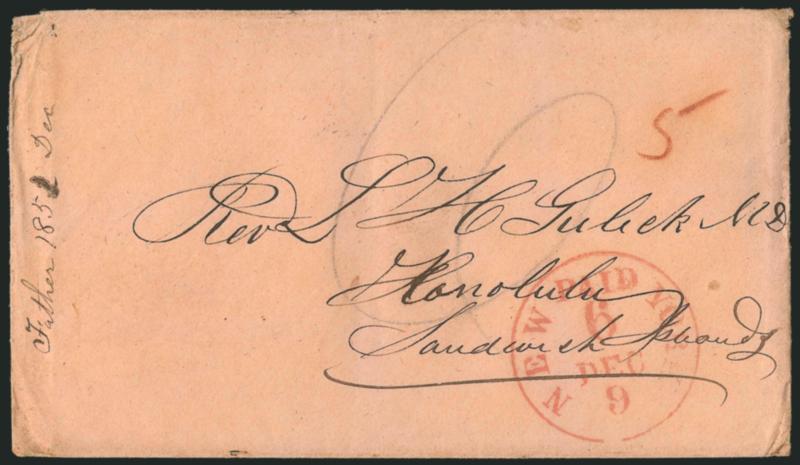 Father 1851 Dec
5
6
Rev L H Gulick M D
Honolulu
Sandwich Islands
NEW PAID YORK
6
DEC
9